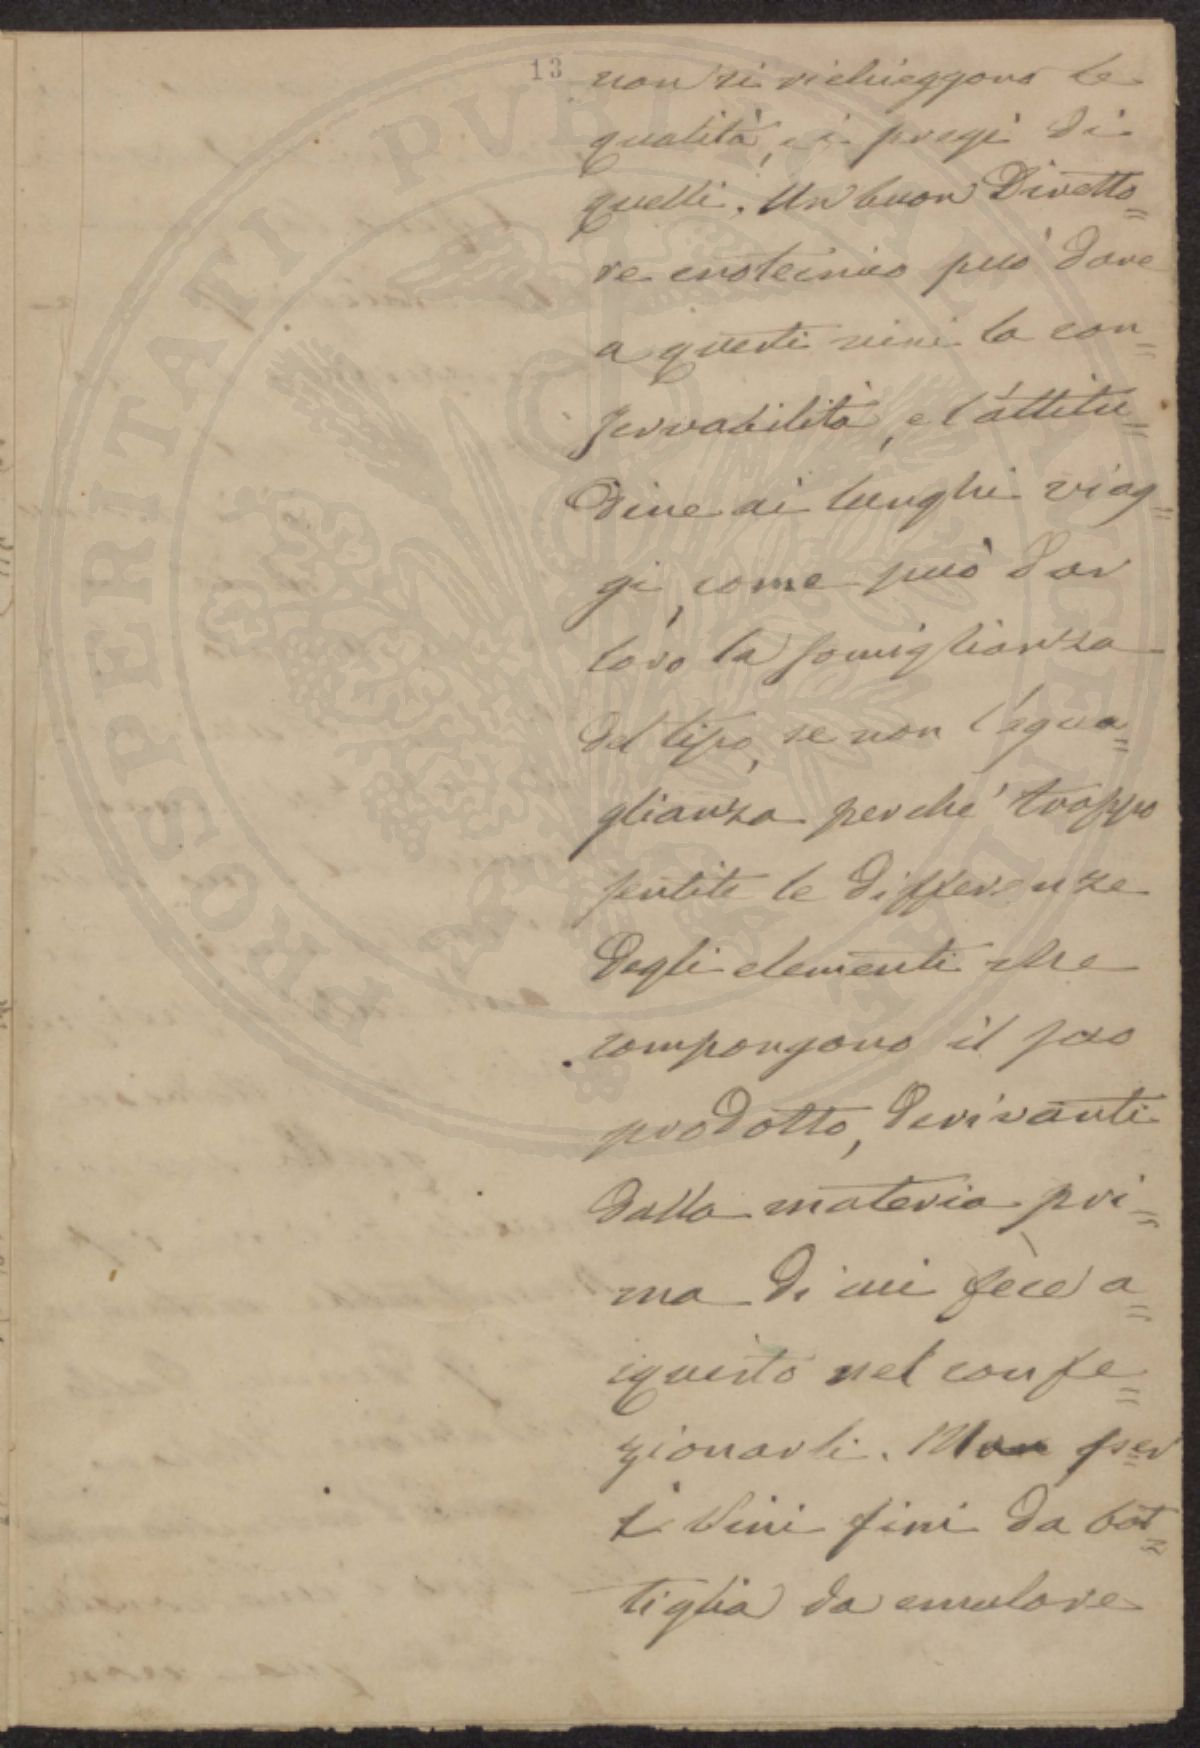 13
non si richieggono le
qualità, e i pregi di
quelli. Un buon Diretto=
re enotecnico può dare
a questi vini la con=
servabilità, e l'attitu=
dine ai lunghi viag=
gi, come può dar
loro la somiglianza
del tipo, se non l'egua=
glianza perché troppo
sentite le differenze
degli elementi che
compongono il suo
prodotto, derivanti
dalla materia pri=
ma di cui fece a=
cquisto nel confe=
zionarli. per
i Vini fini da bot=
tiglia da emulare
PROSPERITATI PVBLICAE